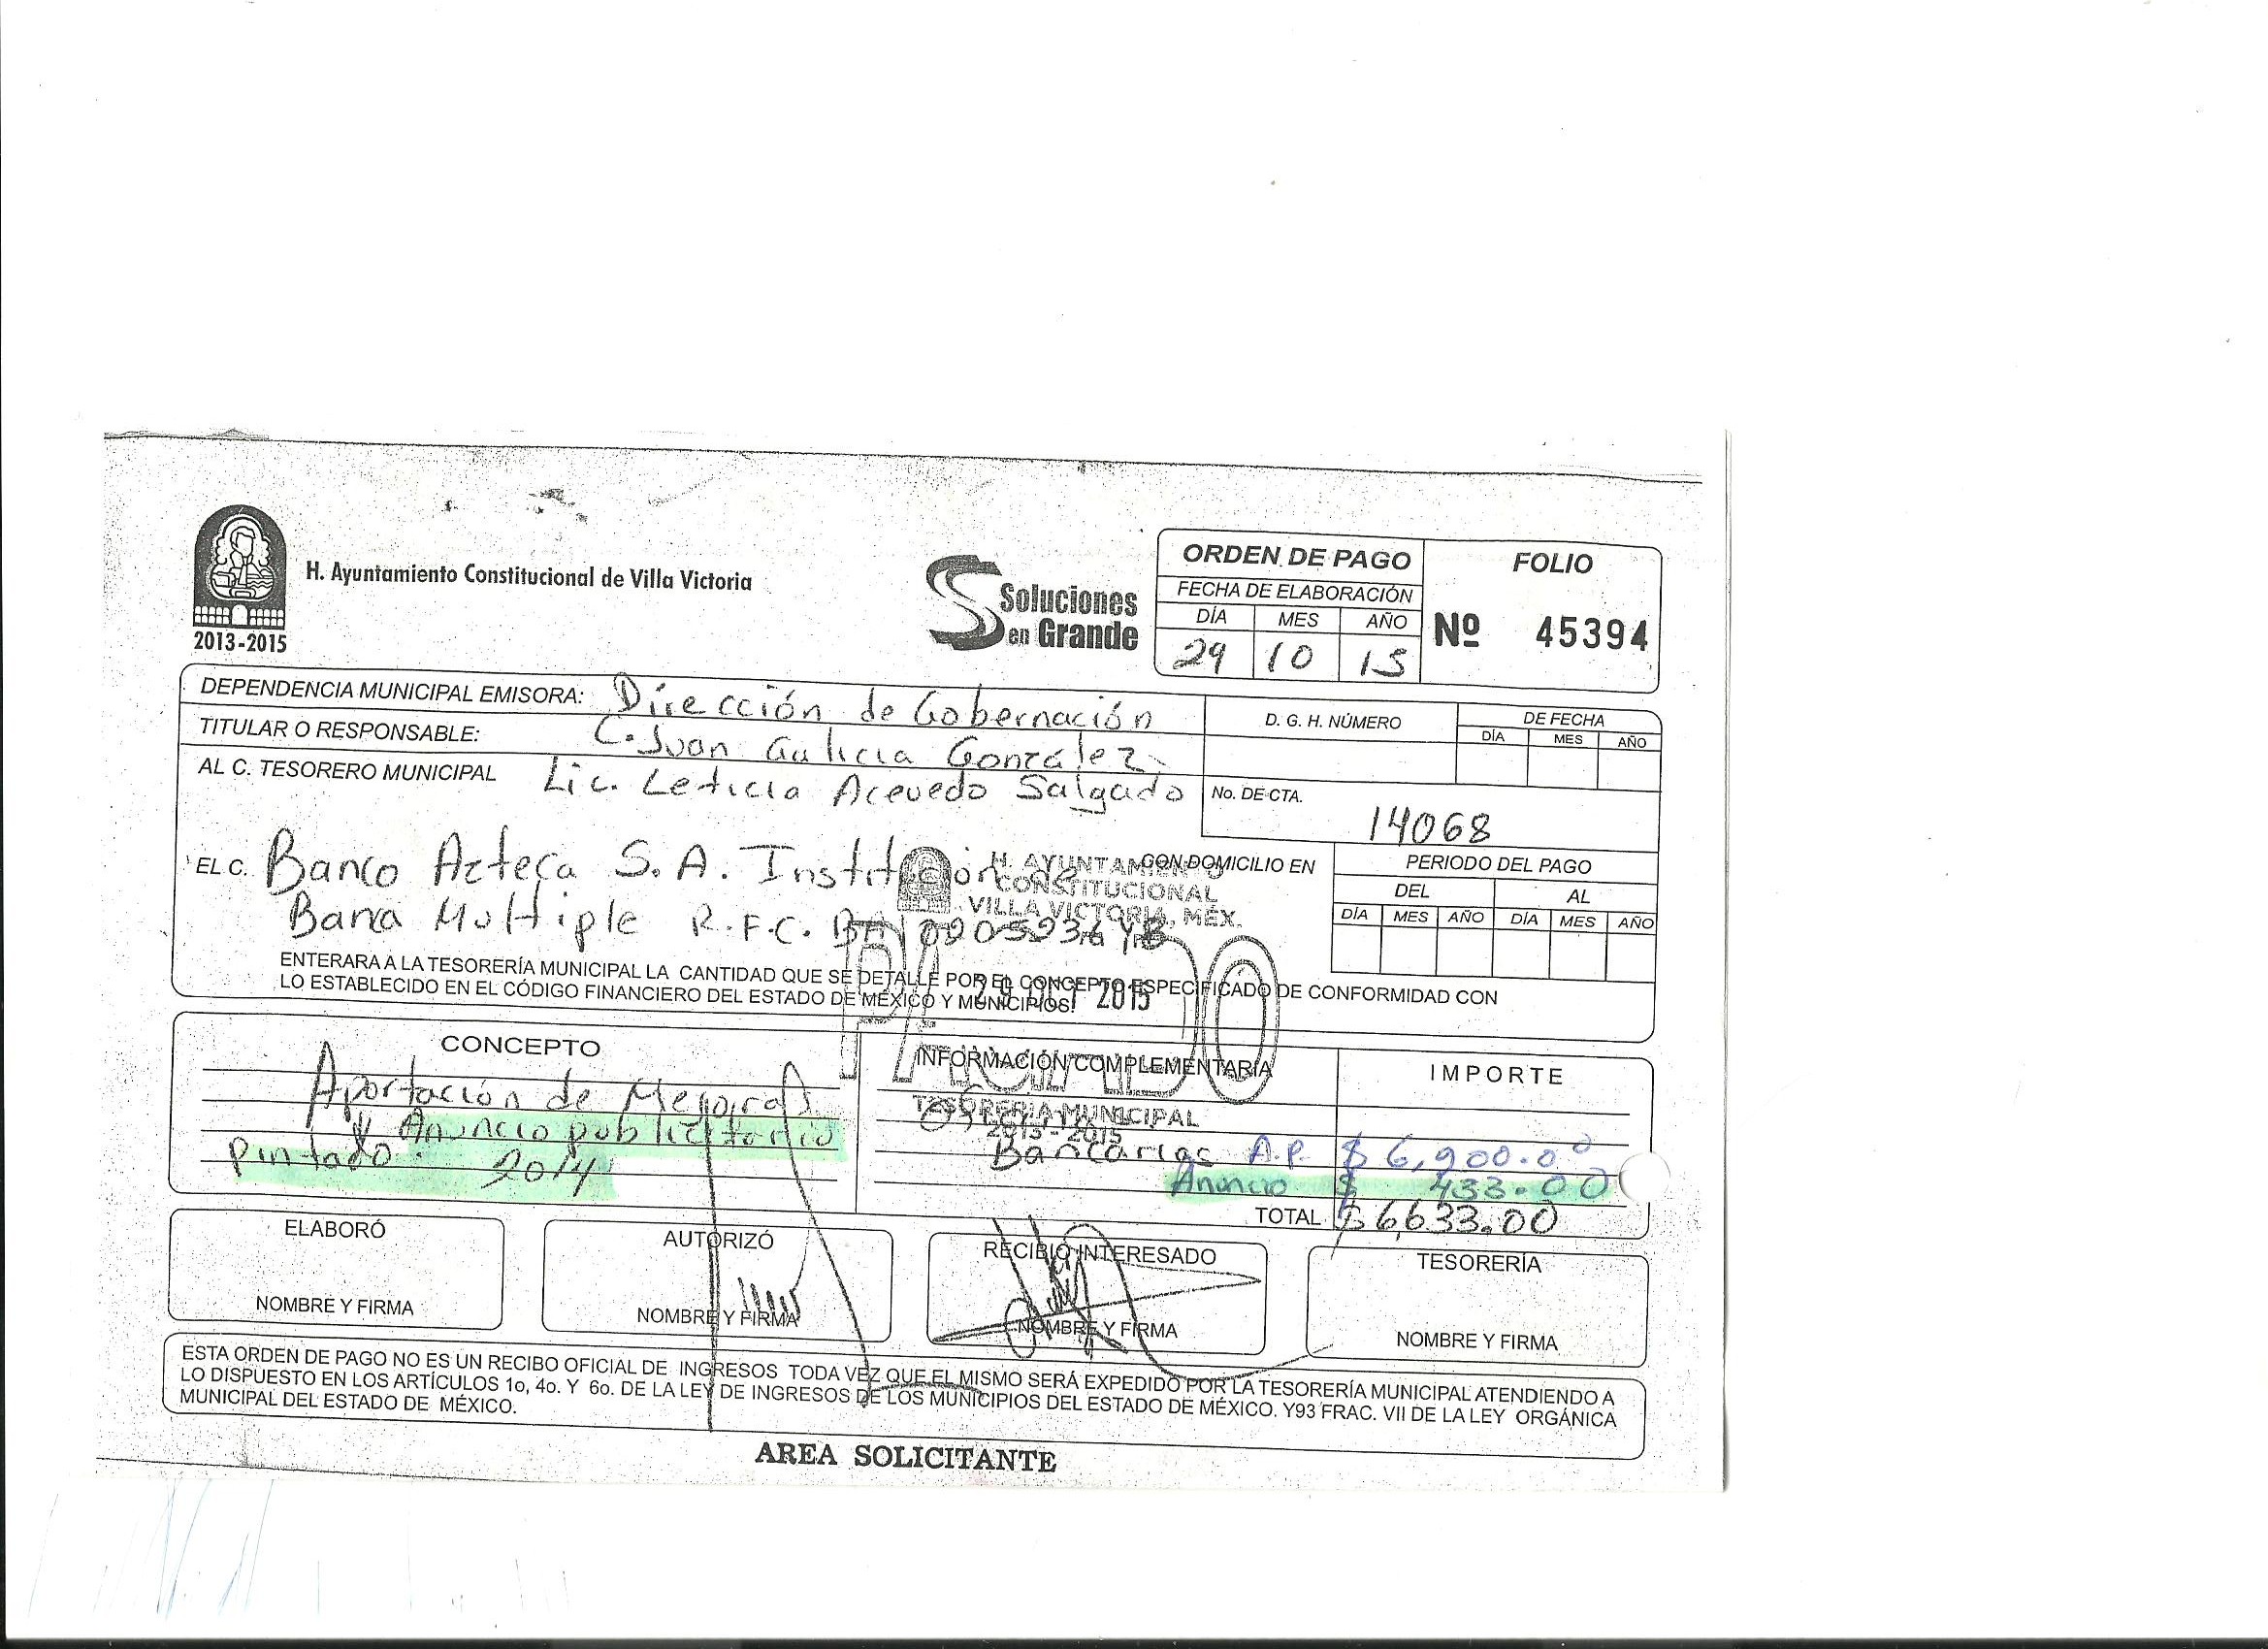 H. Ayuntamiento Constitucional de Villa Victoria
2013-2015
Soluciones
en Grande
ORDEN DE PAGO
FECHA DE ELABORACIÓN
DÍA MES AÑO
29 10 15
FOLIO
Nº 45394
DEPENDENCIA MUNICIPAL EMISORA: Dirección de Gobernación
TITULAR O RESPONSABLE: C. Juan Galicia González.
AL C. TESORERO MUNICIPAL Lic. Leticia Acevedo Salgado
D. G. H. NÚMERO
DE FECHA
DÍA MES AÑO
No. DE CTA.
14068
EL C. Banco Azteca S.A. Institución de CON DOMICILIO EN
Banca Multiple R.F.C.
H. AYUNTAMIENTO
CONSTITUCIONAL
VILLA VICTORIA, MÉX.
PERIODO DEL PAGO
DEL AL
DÍA MES AÑO DÍA MES AÑO
ENTERARA A LA TESORERÍA MUNICIPAL LA CANTIDAD QUE SE DETALLE POR EL CONCEPTO ESPECIFICADO DE CONFORMIDAD CON
LO ESTABLECIDO EN EL CÓDIGO FINANCIERO DEL ESTADO DE MÉXICO Y MUNICIPIOS.
29 OCT 2015
PAGADO
TESORERIA MUNICIPAL
2013-2015
CONCEPTO
Aportación de Mejoras
y Anuncio publicitario
Pintado. 2014
INFORMACIÓN COMPLEMENTARIA
IMPORTE
Bancarias A.P. $ 6,200.00
Anuncio $ 433.00
TOTAL $ 6,633.00
ELABORÓ
NOMBRE Y FIRMA
AUTORIZÓ
NOMBRE Y FIRMA
RECIBIÓ INTERESADO
NOMBRE Y FIRMA
TESORERÍA
NOMBRE Y FIRMA
ESTA ORDEN DE PAGO NO ES UN RECIBO OFICIAL DE INGRESOS TODA VEZ QUE EL MISMO SERÁ EXPEDIDO POR LA TESORERÍA MUNICIPAL ATENDIENDO A
LO DISPUESTO EN LOS ARTÍCULOS 1o, 4o. Y 6o. DE LA LEY DE INGRESOS DE LOS MUNICIPIOS DEL ESTADO DE MÉXICO. Y93 FRAC. VII DE LA LEY ORGÁNICA
MUNICIPAL DEL ESTADO DE MÉXICO.
AREA SOLICITANTE